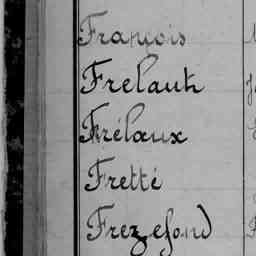 François
Frelaut
Frélaux
Fretté
Frezefond